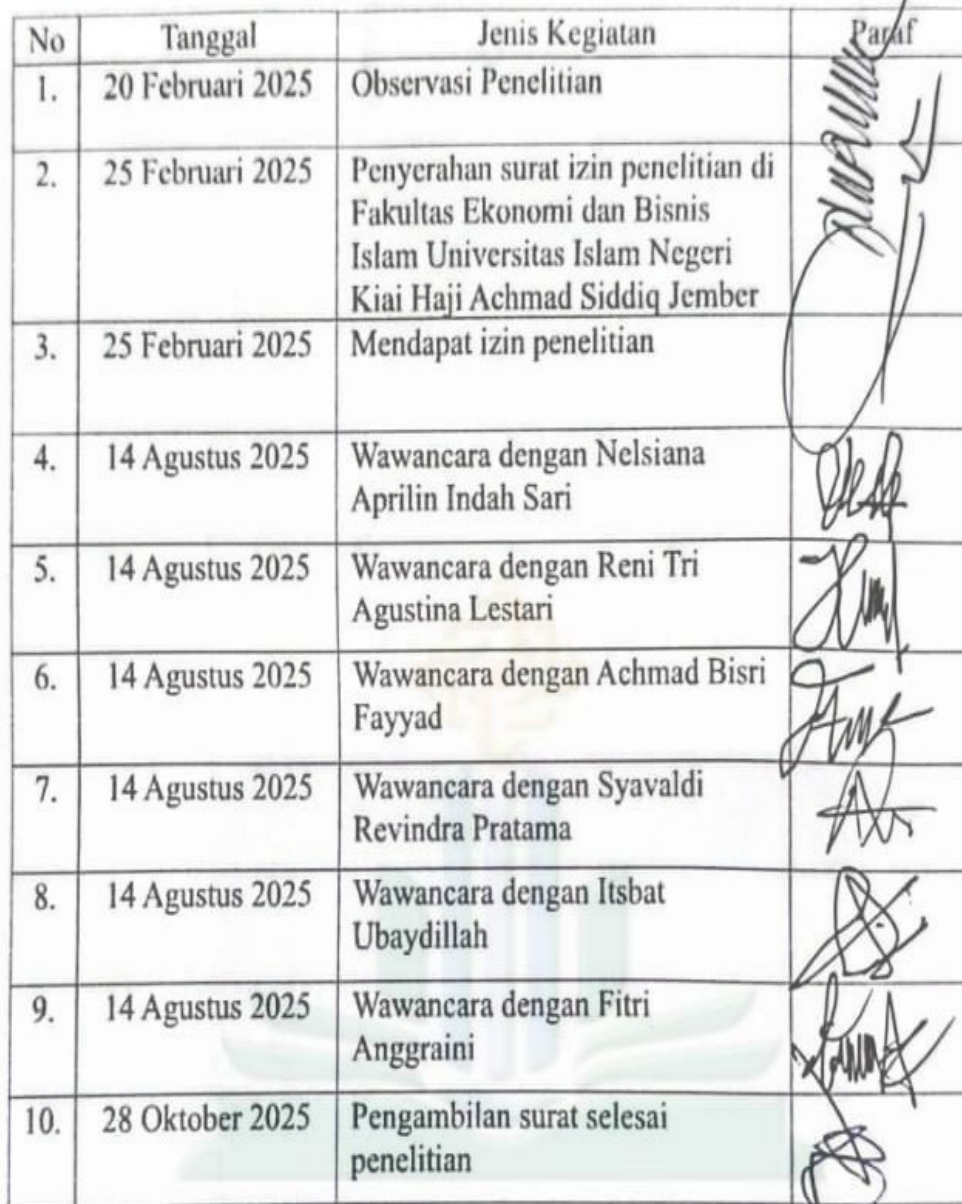 No Tanggal Jenis Kegiatan Paraf
1. 20 Februari 2025 Observasi Penelitian
2. 25 Februari 2025 Penyerahan surat izin penelitian di
Fakultas Ekonomi dan Bisnis
Islam Universitas Islam Negeri
Kiai Haji Achmad Siddiq Jember
3. 25 Februari 2025 Mendapat izin penelitian
4. 14 Agustus 2025 Wawancara dengan Nelsiana
Aprilin Indah Sari
5. 14 Agustus 2025 Wawancara dengan Reni Tri
Agustina Lestari
6. 14 Agustus 2025 Wawancara dengan Achmad Bisri
Fayyad
7. 14 Agustus 2025 Wawancara dengan Syavaldi
Revindra Pratama
8. 14 Agustus 2025 Wawancara dengan Itsbat
Ubaydillah
9. 14 Agustus 2025 Wawancara dengan Fitri
Anggraini
10. 28 Oktober 2025 Pengambilan surat selesai
penelitian